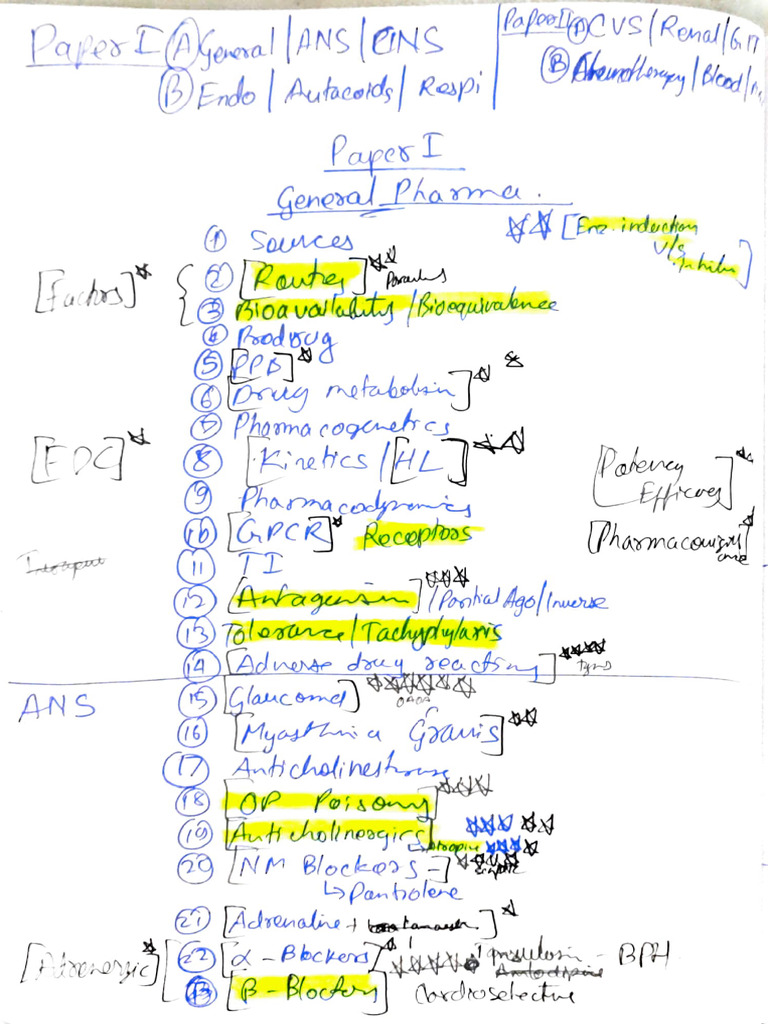 Paper I (A) General / ANS / CNS
(B) Endo / Autacoids / Respi
Paper II (A) CVS / Renal / GIT
(B) Chemotherapy / Blood /
Paper I
General Pharma.
[Enz. induction
v/s
inhibi]
① Sources
[Factors]
② [Routes]
③ Bioavailability / Bioequivalence
④ Prodrug
⑤ [PPB]
⑥ [Drug metabolism]
⑦ Pharmacogenetics
[FDC]
⑧ [Kinetics / [HL]
[Potency
Efficacy]
⑨ Pharmacodynamics
⑩ [GPCR] Receptors
[Pharmacovigil
ance]
⑪ TI
⑫ [Antagonism] / Partial Ago / Inverse
⑬ Tolerance / Tachyphylaxis
⑭ [Adverse drug reactions] types
ANS
⑮ [Glaucoma] OAOA
⑯ [Myasthenia Gravis]
⑰ Anticholinesterase
⑱ [OP Poisong]
⑲ [Anticholinergics]
↳ atropine
⑳ [NM Blockers -]
↳ Dantrolene
㉑ [Adrenaline +]
[Adrenergic]
㉒ [α - Blockers] Tamsulosin - BPH
[β - Blockers] Cardioselective